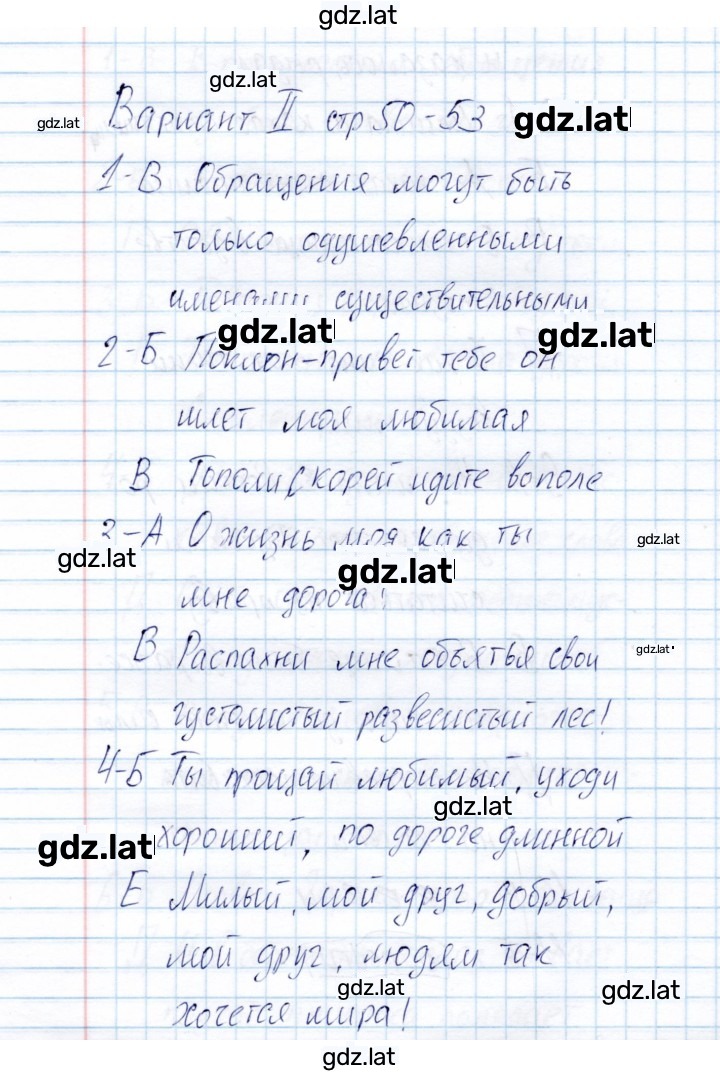 gdz.lat
gdz.lat
gdz.lat
Вариант II стр 50-53 gdz.lat
1-В Обращения могут быть
только одушевленными
именами существительными
gdz.lat
gdz.lat
2-Б Поклон-привет тебе он
шлет моя любимая
В Тополи скорей идите во поле
2-А О жизнь моя как ты
gdz.lat
gdz.lat
gdz.lat
мне дорога!
В Распахни мне объятья свои
gdz.lat
густолистый развесистый лес!
4-Б Ты прощай любимый, уходи
gdz.lat
gdz.lat
хороший, по дороге длинной
Е Милый, мой друг, добрый,
мой друг, людям так
gdz.lat
gdz.lat
хочется мира!
gdz.lat